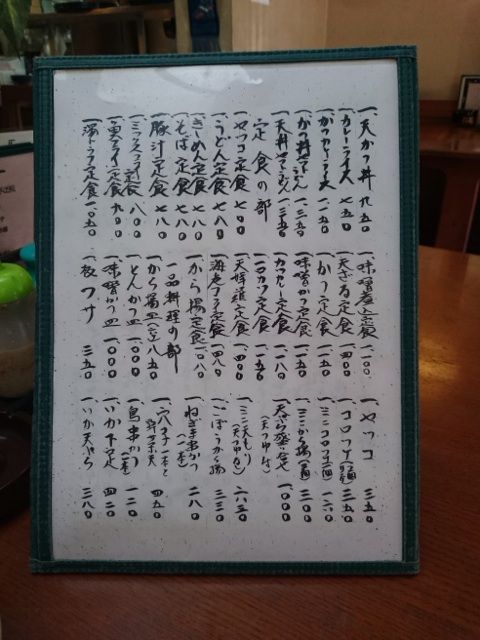 一、天かつ丼 九五〇
一、カレーライス 七五〇
一、かつカレーライス大 一一五〇
一、かつ丼セットうどん 一三五〇
一、天丼セットうどん 一三五〇
定食の部
一、ヤッコ定食 七〇〇
一、うどん定食 七八〇
一、きしめん定食 七八〇
一、そば定食 七八〇
豚汁定食 七八〇
一、ミックスフライ定食
一、魚フライ定食 九〇〇
一、海トラフ定食 一〇五〇
一、味噌煮込定食 一一〇〇
一、天ざる定食 一四〇〇
一、かつ定食 一一五〇
一、味噌かつ定食 一一五〇
一、カツカレー定食 一一八〇
一、一口カツ定食 一一五〇
天婦羅定食 一四〇〇
海老フライ定食 一四八〇
一、から揚定食 一〇八〇
一品料理の部
一、から揚皿 八五〇
一、とんかつ皿 一〇〇〇
一、味噌かつ皿 一〇〇〇
一、板ワサ 三五〇
一、ヤッコ 三五〇
一、コロッケ 三五〇
一、ミニコロッケ 一六〇
一、ミニから揚 三〇〇
一、天ぷら盛合せ 一〇〇〇
一、ミニ天もり 六五〇
一、ごぼうから揚 三三〇
一、ねぎま串かつ(一本) 二八〇
一、穴子一本と 四五〇
一、鳥串かつ 一二〇
一、いか下足 四二〇
一、いか天ぷら 三八〇